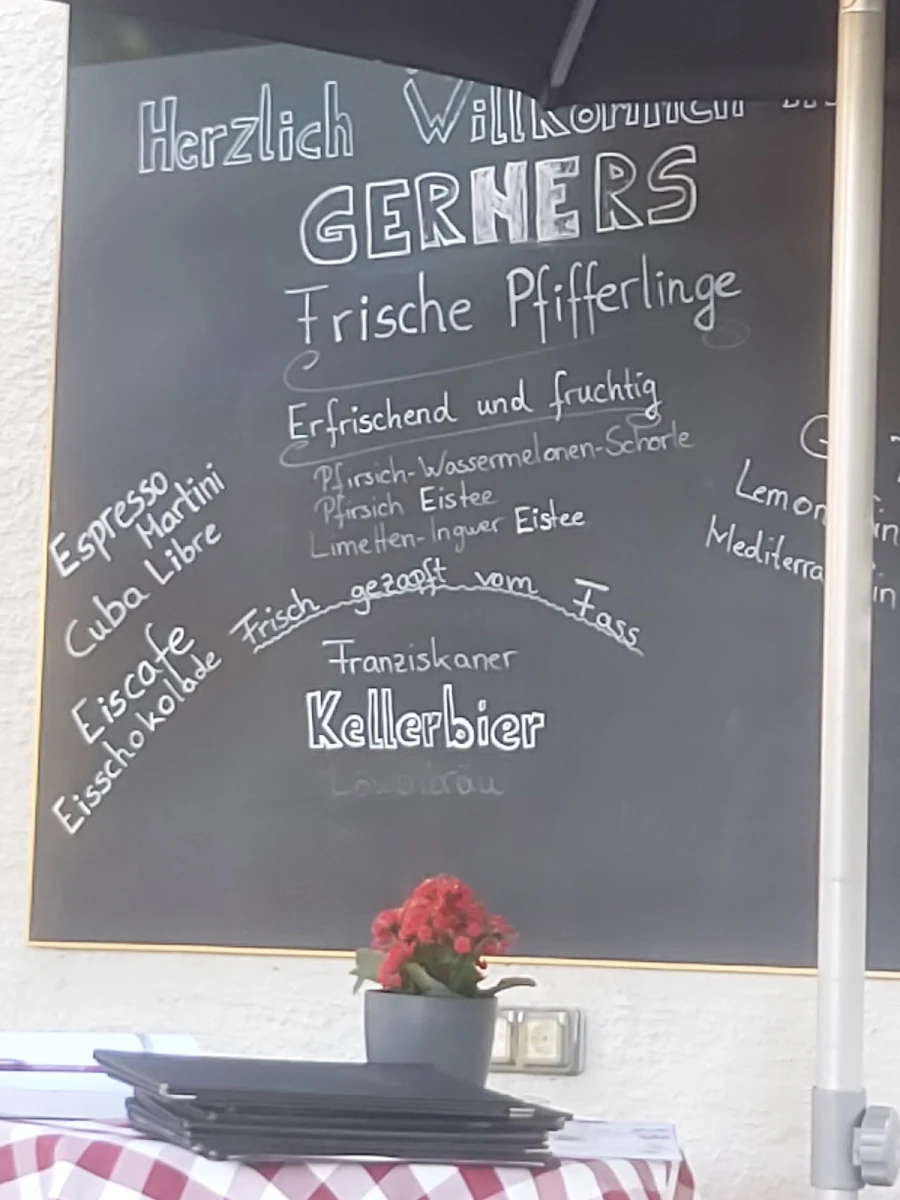 Herzlich Willkommen
GERNERS
Frische Pfifferlinge
Erfrischend und fruchtig
Pfirsich-Wassermelonen-Schorle
Pfirsich Eistee
Limetten-Ingwer Eistee
Frisch gezapft vom Fass
Franziskaner
Kellerbier
Löwenbräu
Espresso
Martini
Cuba Libre
Eiscafe
Eisschokolade
G
Lemon in
Mediterra in